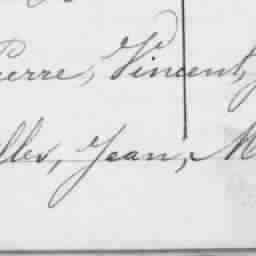 Pierre, Vincent,
lles, Jean, M